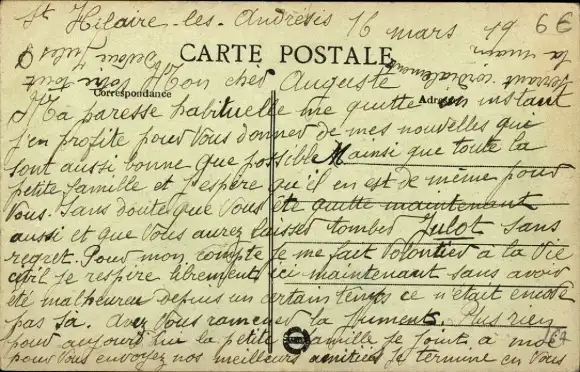 St Hilaire-les-Andrésis 16 mars 19
6€
CARTE POSTALE
Correspondance
Adre
Mon cher Auguste
Ma paresse habituelle me quitte un instant
j'en profite pour vous donner de mes nouvelles qui
sont aussi bonne que possible ainsi que toute la
petite famille et j'espère qu'il en est de même pour
vous. Sans doute que vous été quitte maintenant
aussi et que vous aurez laisser tomber Julot sans
regret. Pour mon compte je me fait volontier à la vie
civil je respire librement ici maintenant sans avoir
été malheureux depuis un certain temps ce n'était encore
pas sa. Avez vous ramener la jument. Plus rien
pour aujourd'hui la petite famille se joint a moi
pour vous envoyez nos meilleurs amitiés je termine en vous
serrant cordialement
la main